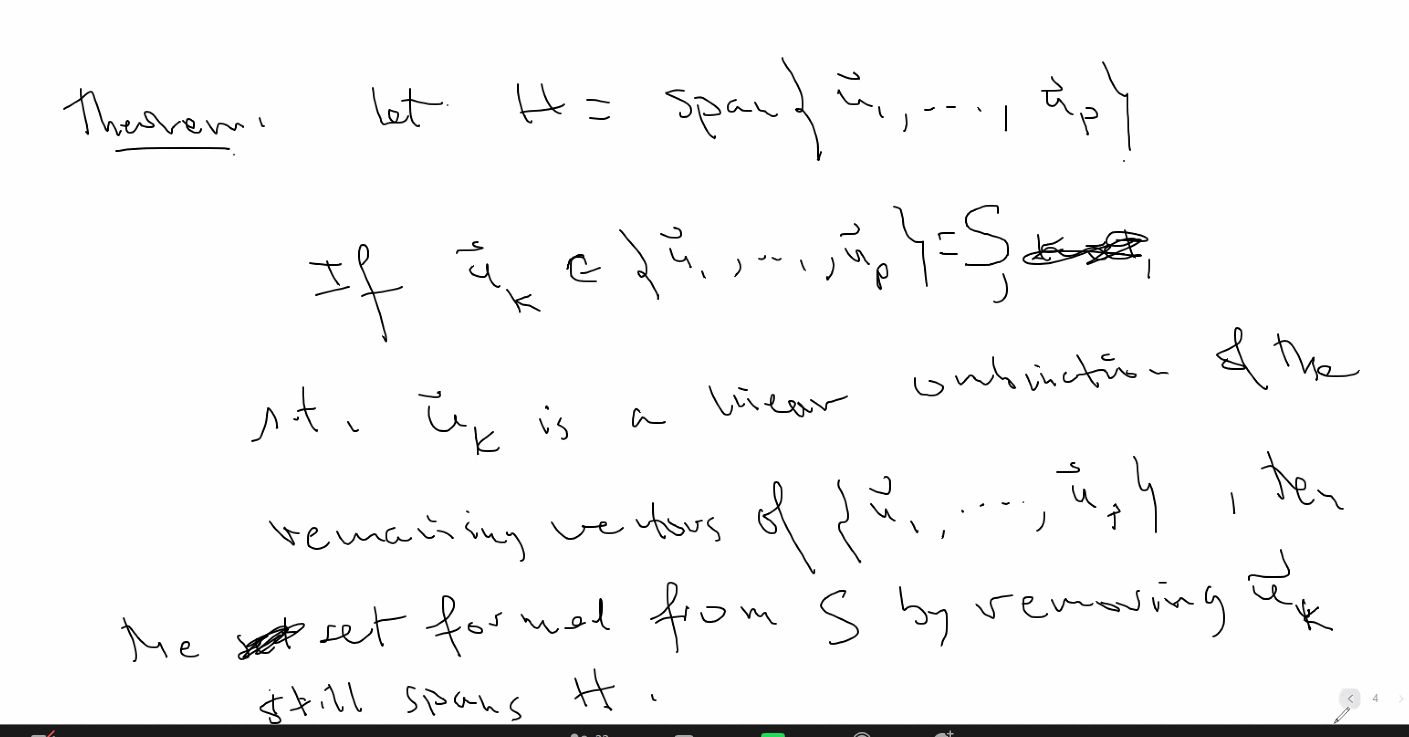 Theorem. Let H = span{u⃗₁, ...., u⃗ₚ}
If u⃗ₖ ∈ {u⃗₁, ..., u⃗ₚ} = S,
s.t. u⃗ₖ is a linear combination of the
remaining vectors of {u⃗₁, ...., u⃗ₚ}, then
the set formed from S by removing u⃗ₖ
still spans H.
4